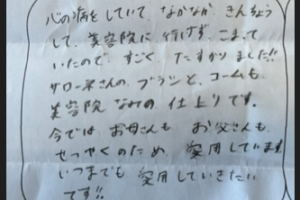 心の病をしていて なかなか きんちょう
して、美容院に行けず、こまって
いたので、すごく たすかりました!!
サロー祢さんの、ブラシと、コームも、
美容院 なみの 仕上りです。
今では、お母さんも お父さんも、
せっやくのため 愛用しています
いつまでも 愛用していきたい
です!!